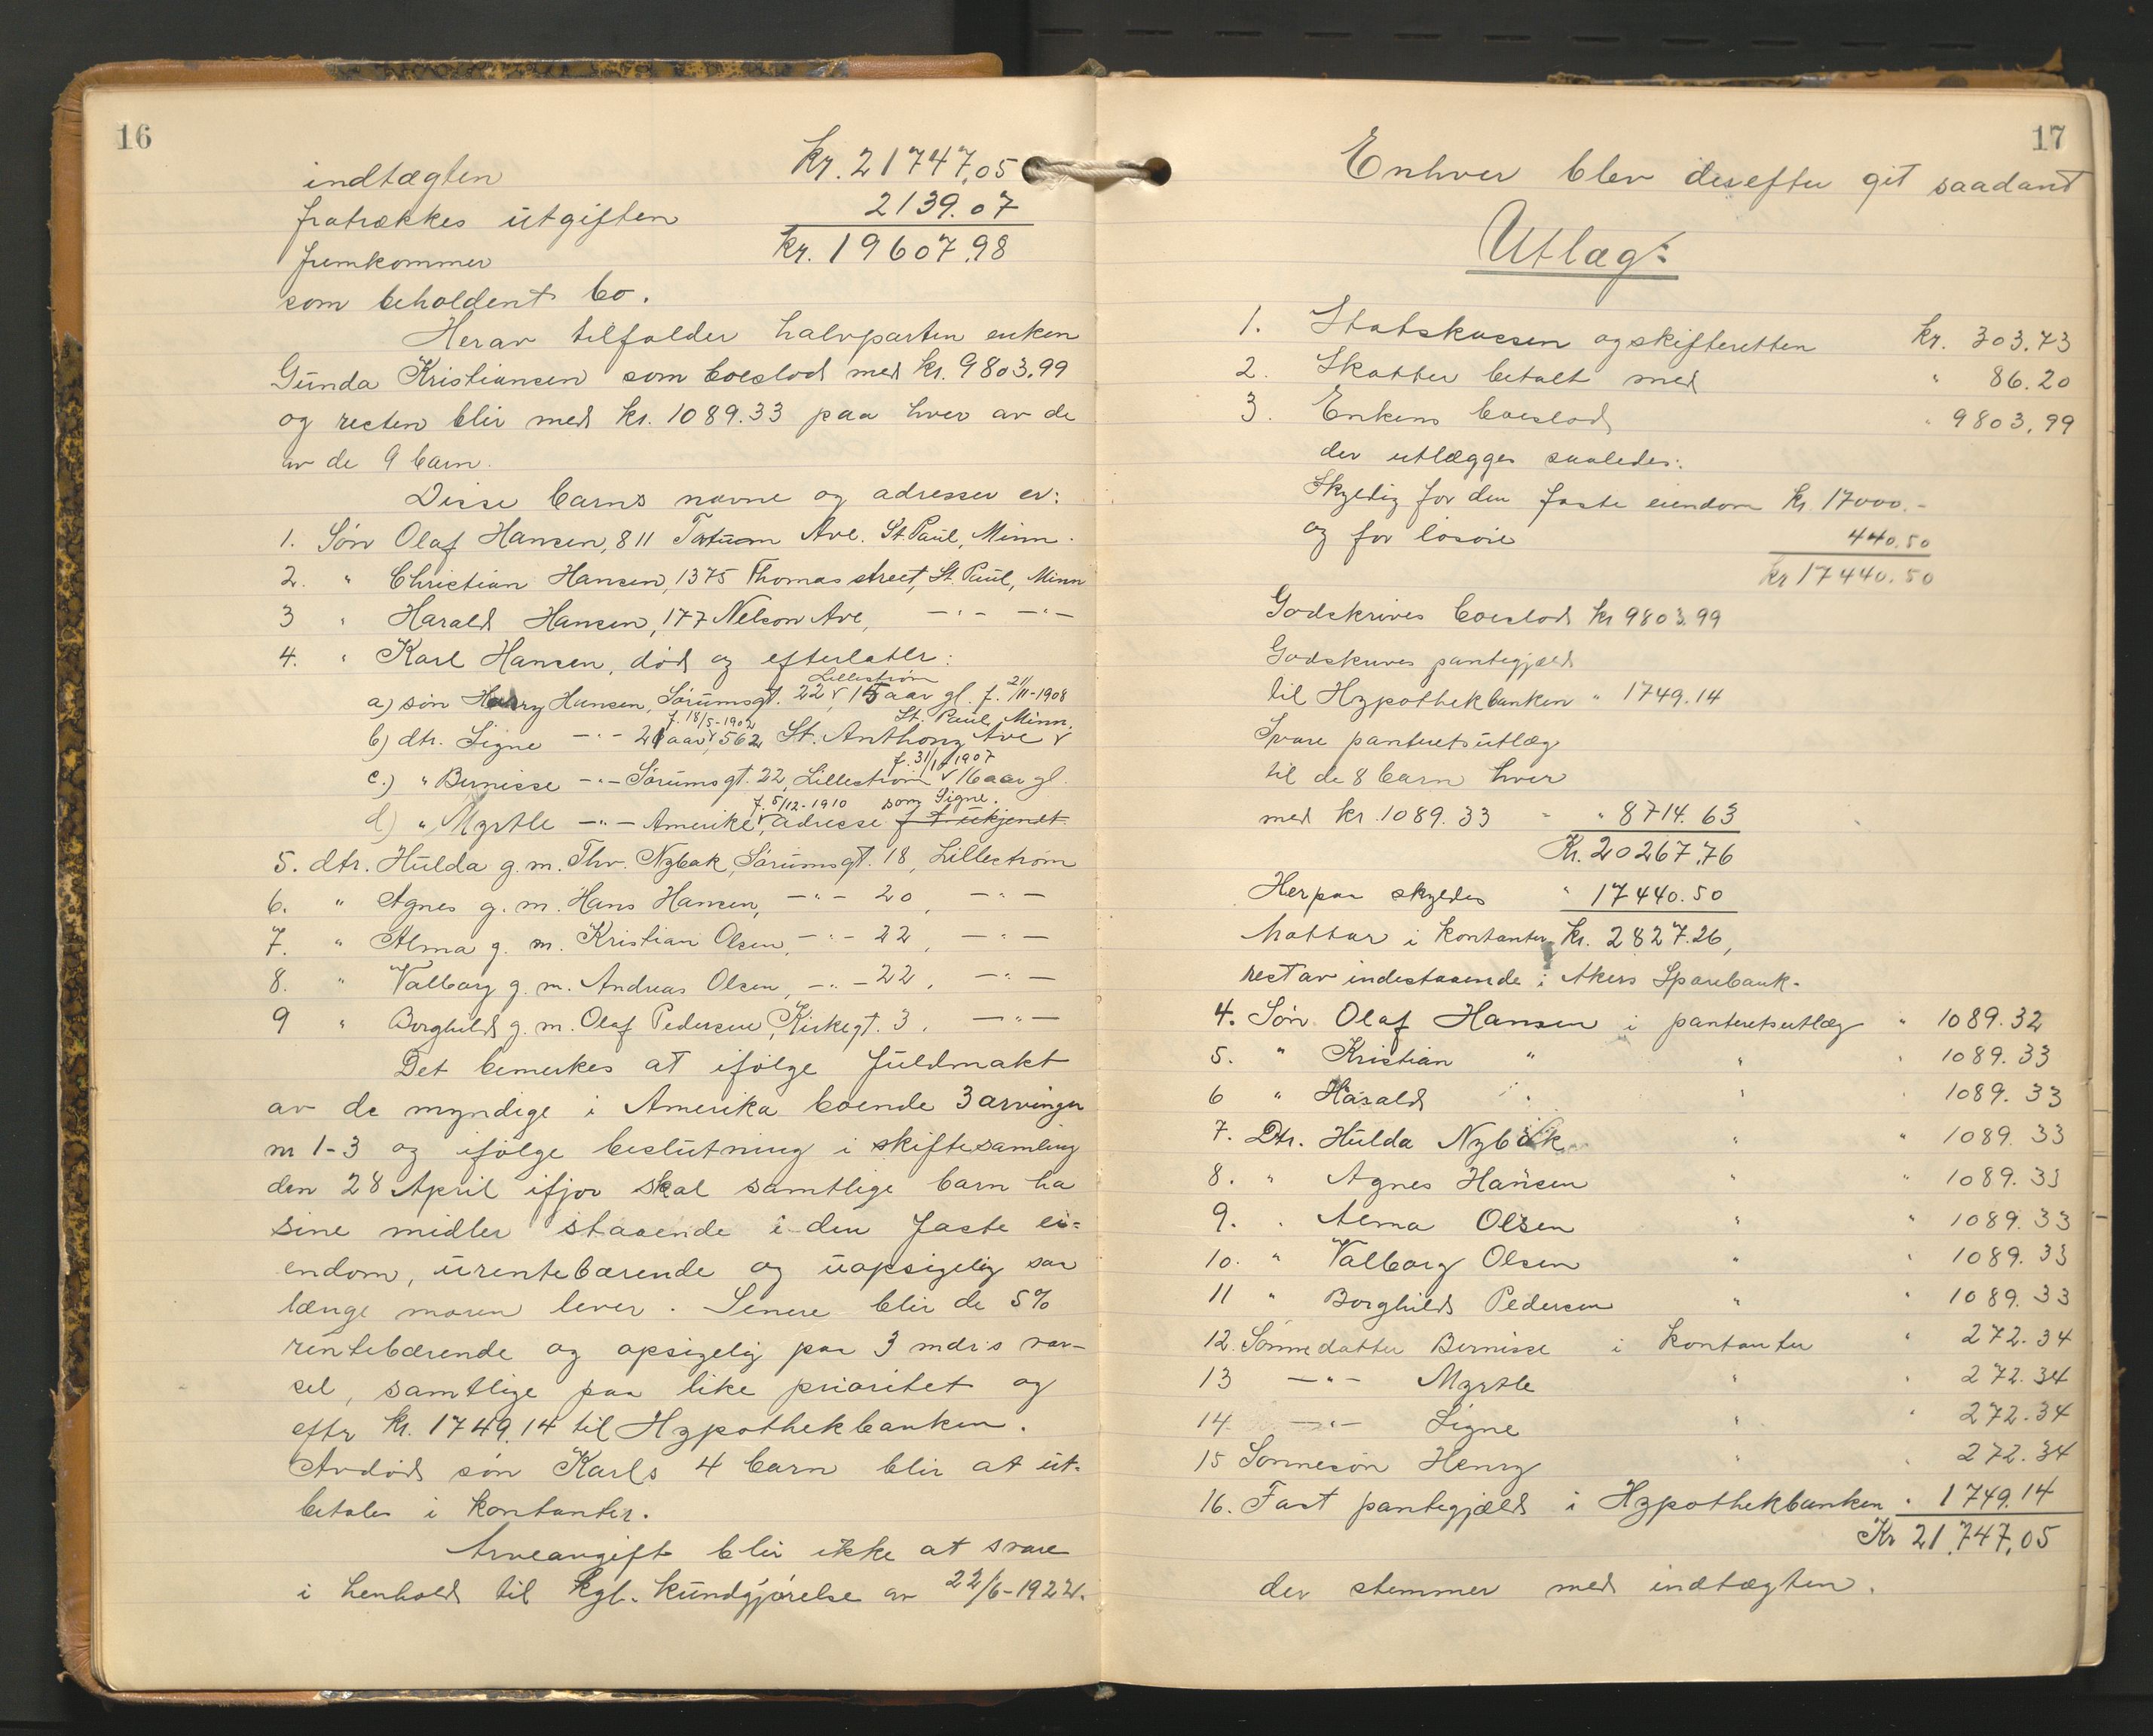 16
indtægten kr. 21747,05
fratrækkes utgiften 2139.07
fremkommer kr. 19607.98
som beholdent bo.
Herav tilfalder halvparten enken
Gunda Kristiansen som boeslod med kr. 9803.99
og resten blir med kr. 1089.33 paa hver av de
av de 9 barn.
Disse barns navne og adresser er:
1. Søn Olaf Hansen, 811 Tatum Ave. St. Paul, Minn.
2. " Christian Hansen, 1375 Thomas street, St. Paul, Minn
3 " Harald Hansen, 177 Nelson Ave, -"- -"-
4. " Karl Hansen, død og efterlater:
Lillestrøm
a) søn Henry Hansen, Sørumsgt. 22, 15 aar gl. f. 21/11-1908
f. 18/5-1902 St. Paul, Minn.
b) dtr. Signe -"- 21 aar, 562 St. Anthony Ave
f. 31/1 1907
c.) " Bernisse -"- Sørumsgt. 22, Lillestrøm 16 aar gl.
f. 5/12-1910 som Signe.
d) " Myrtle -"- Amerika, adresse ukjendt
5. dtr. Hulda g. m. Thv. Nybak, Sørumsgt. 18, Lillestrøm
6. " Agnes g. m. Hans Hansen, -"- 20, -"-
7. " Alma g. m. Kristian Olsen, -"- 22, -"-
8. " Valborg g. m. Andreas Olsen, -"- 22, -"-
9 " Borghild g. m. Olaf Pedersen, Kirkegt. 3, -"-
Det bemerkes at ifølge fuldmakt
av de myndige i Amerika boende 3 arvinger
nr 1-3 og ifølge beslutning i skiftesamling
den 28 April ifjor skal samtlige barn ha
sine midler staaende i den faste ei=
endom, urentebærende og uopsigelig saa
længe moren lever. Senere blir de 5%
rentebærende og opsigelig paa 3 mdr's var-
sel, samtlige paa like prioritet og
eftr kr. 1749.14 til Hypothekbanken.
Avdød søn Karls 4 barn blir at ut-
betales i kontanter.
Arveavgift blir ikke at svare
i henhold til kgl. kundgjørelse av 22/6-1922.
17
Enhver blev derefter git saadant
Utlæg:
1. Statskassen og skifteretten kr. 303.73
2. Skatter betalt med " 86.20
3. Enkens boeslod " 9803.99
der utlægges saaledes:
Skyldig for den faste eiendom kr. 17000.-
og for løsøre 440.50
kr 17440.50
Godskrives boeslod kr 9803.99
Godskrives pantegjæld
til Hypothekbanken " 1749.14
Svare panteretsutlæg
til de 8 barn hver
med kr. 1089.33 - " 8714.63
Kr. 20267,76
Herpaa skyldes " 17440.50
Mottar i kontanter kr. 2827.26,
rest av indestaaende i Akers Sparebank.
4. Søn Olaf Hansen i panteretsutlæg " 1089.32
5. " Kristian " " " 1089.33
6 " Harald " " " 1089.33
7. Dtr. Hulda Nybak " " 1089.33
8. " Agnes Hansen " " 1089.33
9. " Alma Olsen " " 1089.33
10. " Valborg Olsen " " 1089.33
11 " Borghild Pedersen " " 1089.33
12. Sønnedatter Bernisse i kontanter " 272.34
13 -"- Myrtle " " 272.34
14. -"- Signe " " 272.34
15 Sønnesøn Henry " " 272.34
16. Fast pantegjæld i Hypothekbanken " 1749.14
Kr 21.747.05
der stemmer med indtægten.